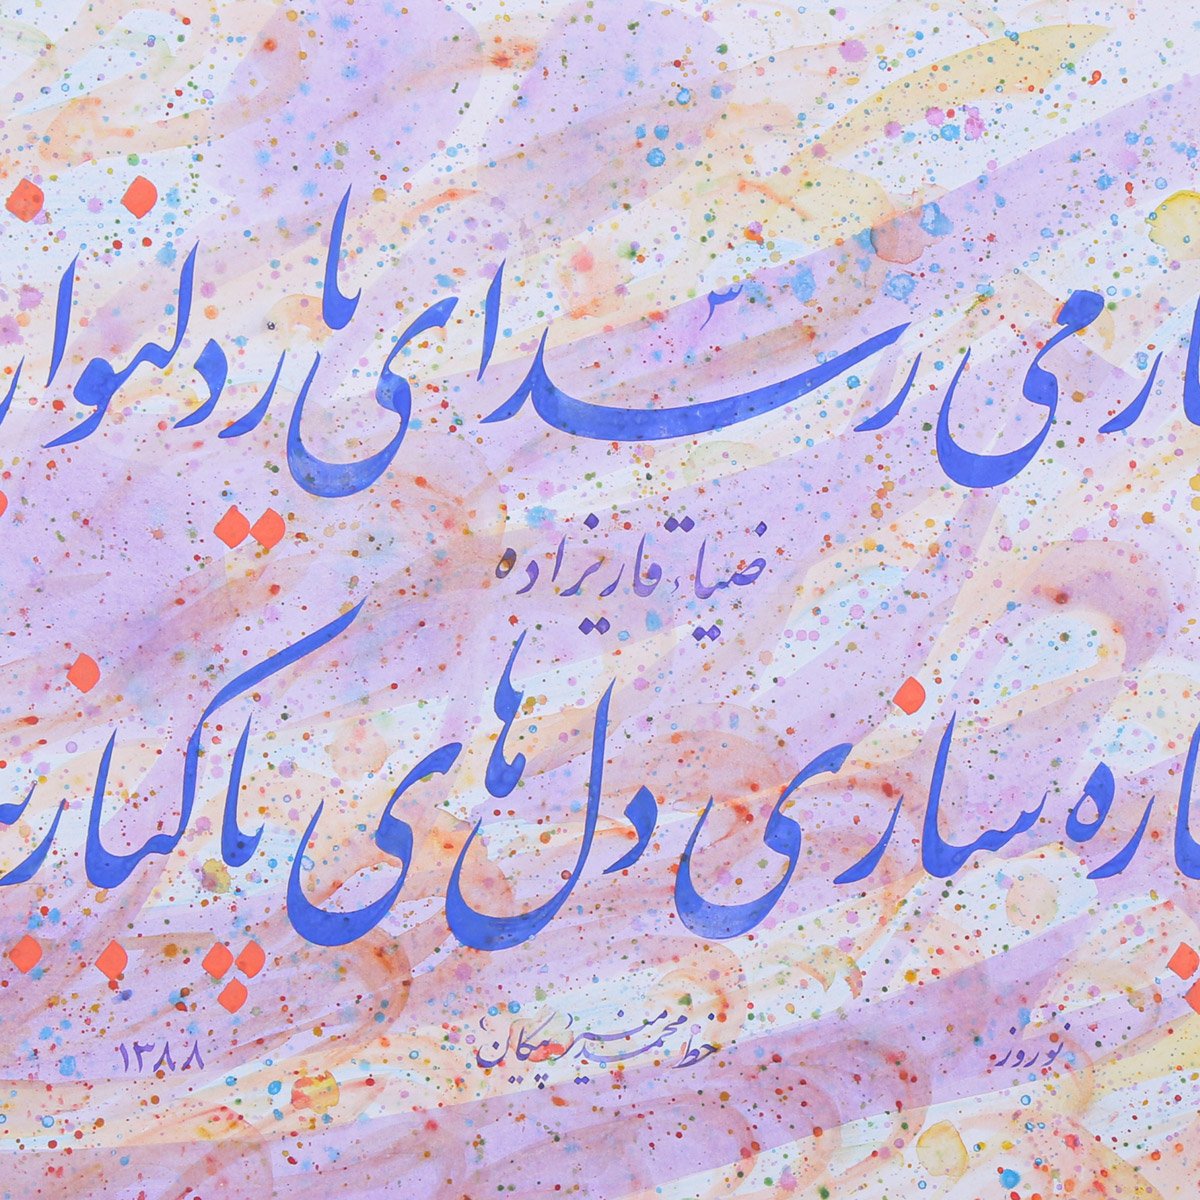 می رسد ای یار دلنواز
ضیاء قاریزاده
چاره سازی دل های پاکباز
نوروز خط محمد منیر «پیکان» ۱۳۸۸